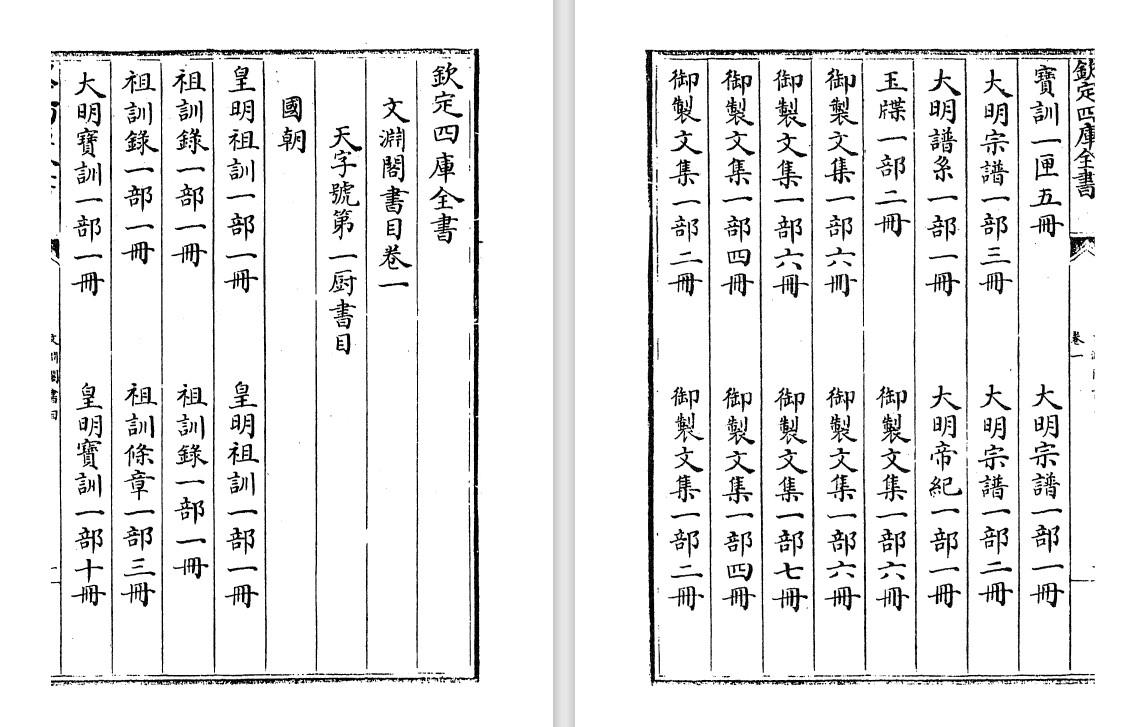 欽定四庫全書
文淵閣書目卷一
天字號第一厨書目
國朝
皇明祖訓一部一冊 皇明祖訓一部一冊
祖訓錄一部一冊 祖訓錄一部一冊
祖訓錄一部一冊 祖訓條章一部三冊
大明寶訓一部一冊 皇明寶訓一部十冊
文淵閣書目
欽定四庫全書
卷一
寶訓一匣五冊 大明宗譜一部一冊
大明宗譜一部三冊 大明宗譜一部二冊
大明譜系一部一冊 大明帝紀一部一冊
玉牒一部二冊 御製文集一部六冊
御製文集一部六冊 御製文集一部六冊
御製文集一部六冊 御製文集一部七冊
御製文集一部四冊 御製文集一部四冊
御製文集一部二冊 御製文集一部二冊